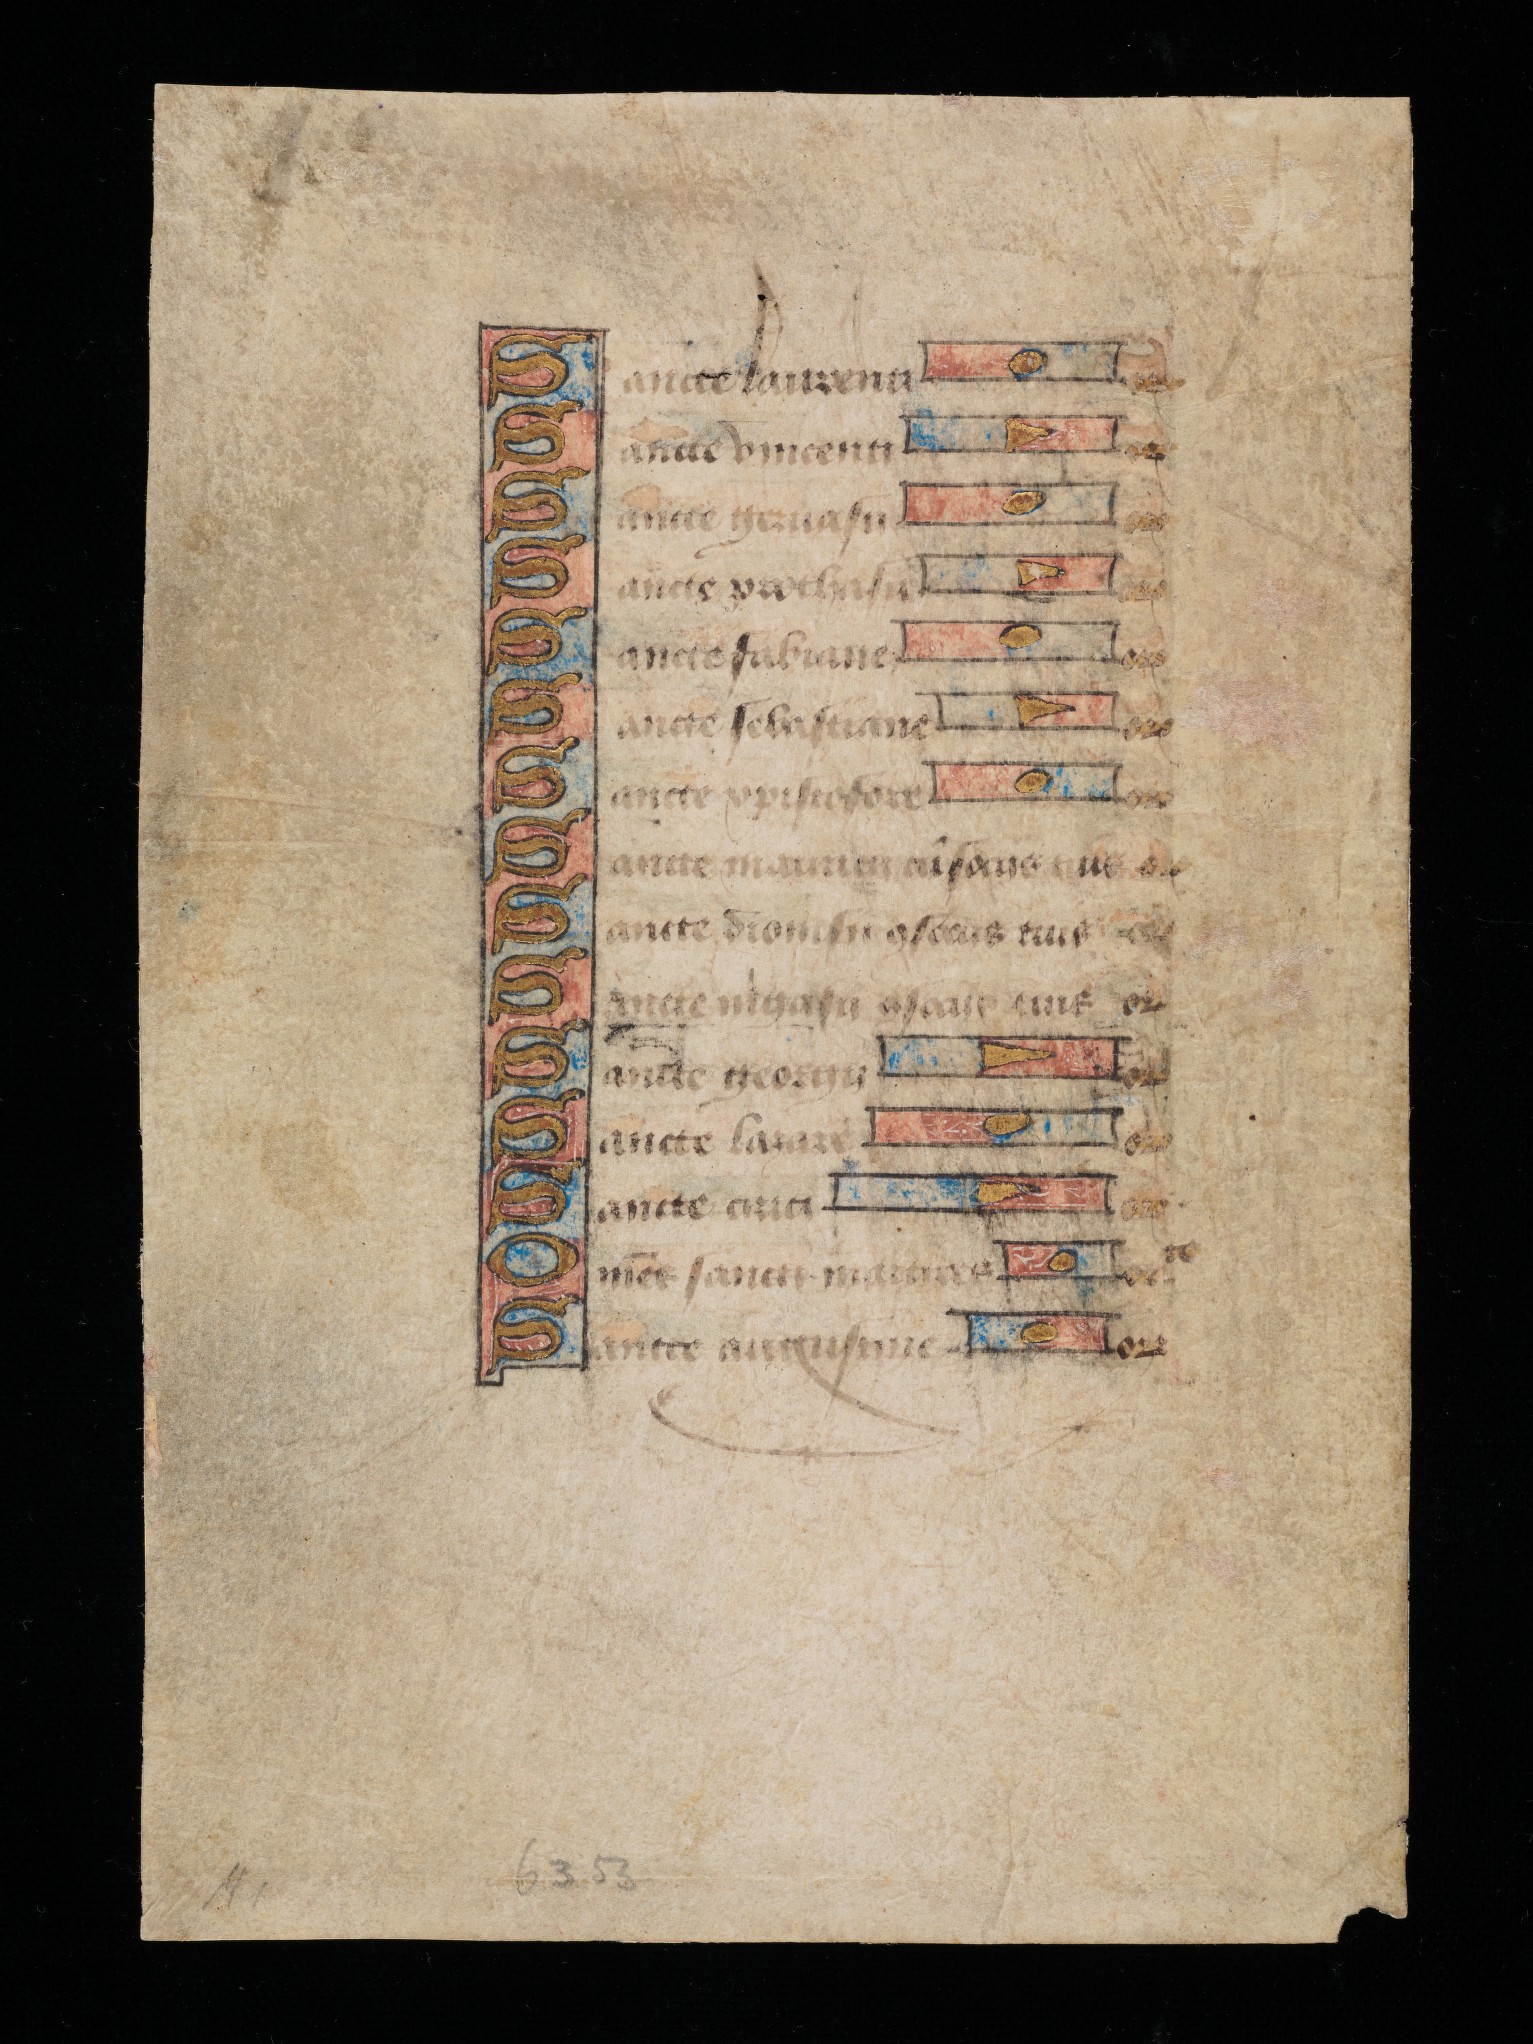 Sancte laurenti ora
Sancte vincenti ora
Sancte geruasii ora
Sancte prothasii ora
Sancte fabiane ora
Sancte sebastiane ora
Sancte xpistofore ora
Sancte maurici cū sociis tuis or
Sancte dionisii ꝯ sociis tuis ora
Sancte nigasii ꝯ sociis tuis ora
Sancte georgii ora
Sancte lazare ora
Sancte cirici ora
Om̄es sancti martires orate
Sancte augustine ora
6353